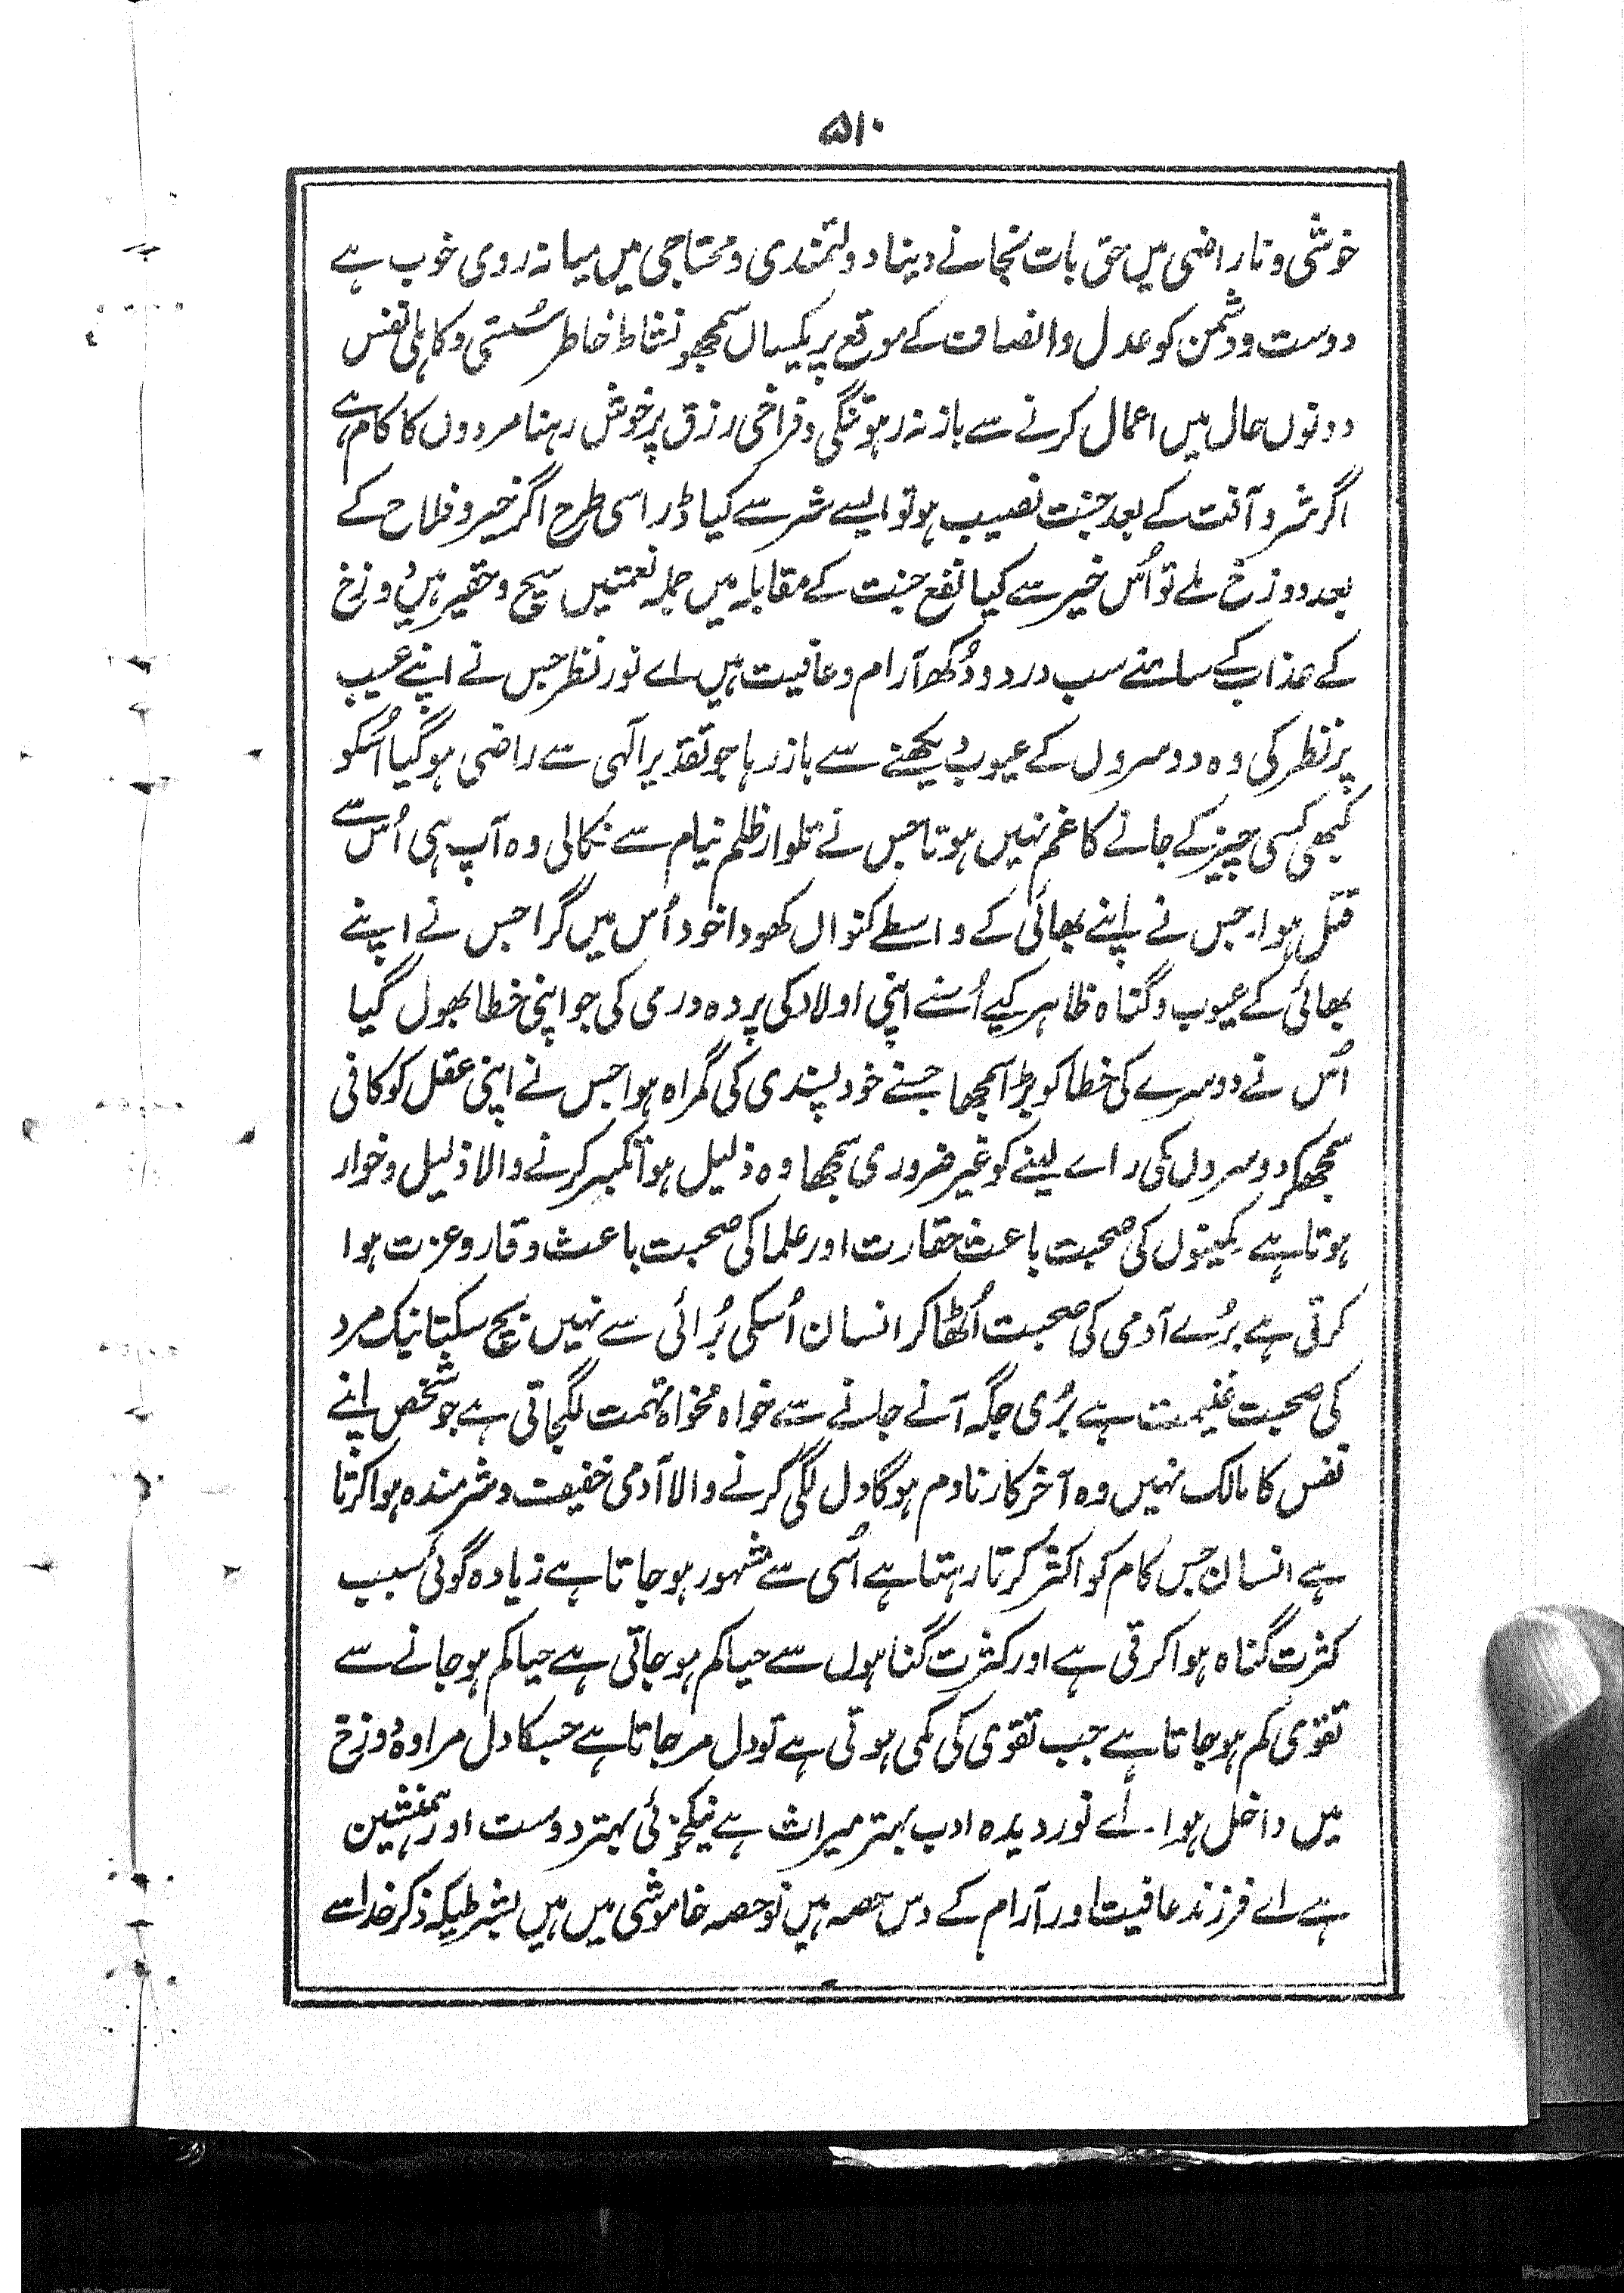 ۵۱۰
خوشی و ناراضی میں حق بات نجانے دینا دولتمندی و محتاجی میں میانہ روی خوب ہے
دوست و دشمن کو عدل و انصاف کے موقع پر یکساں سمجھو نشاط خاطر سُستی و کاہلی نفس
دونوں حال میں اعمال کرنے سے باز نہ رہو تنگی و فراخی رزق پر خوش رہنا مردوں کا کام ہے
اگر شر و آفت کے بعد جنت نصیب ہو تو ایسے شر سے کیا ڈر اسی طرح اگر خیر و فلاح کے
بعد دوزخ ملے تو اُس خیر سے کیا نفع جنت کے مقابلہ میں جملہ نعمتیں ہیچ و حقیر ہیں دوزخ
کے عذاب کے سامنے سب درد و دُکھ آرام و عافیت ہیں اے نور نظر جس نے اپنے عیب
پر نظر کی وہ دوسروں کے عیوب دیکھنے سے باز رہا جو تقدیر الٰہی سے راضی ہو گیا اُسکو
کبھی کسی چیز کے جانے کا غم نہیں ہوتا جس نے تلوار ظلم نیام سے نکالی وہ آپ ہی اُس سے
قتل ہوا۔ جس نے اپنے بھائی کے واسطے کنواں کھودا خود اُس میں گرا جس نے اپنے
بھائی کے عیوب و گناہ ظاہر کیے اُسنے اپنی اولاد کی پردہ دری کی جو اپنی خطا بھول گیا
اُس نے دوسرے کی خطا کو بڑا سمجھا جسنے خود پسندی کی گمراہ ہوا جس نے اپنی عقل کو کافی
سمجھکر دوسروں کی راے لینے کو غیر ضروری سمجھا وہ ذلیل ہوا تکبر کرنے والا ذلیل و خوار
ہوتا ہے کمینوں کی صحبت باعث حقارت اور علما کی صحبت باعث وقار و عزت ہوا
کرتی ہے بُرے آدمی کی صحبت اُٹھا کر انسان اُسکی بُرائی سے نہیں بچ سکتا نیک مرد
کی صحبت غنیمت ہے بُری جگہ آنے جانے سے خواہ مخواہ تہمت لگجاتی ہے جو شخص اپنے
نفس کا مالک نہیں وہ آخر کار نادم ہوگا دل لگی کرنے والا آدمی خفیف و شرمندہ ہوا کرتا
ہے انسان جس کام کو اکثر کرتا رہتا ہے اُسی سے مشہور ہو جاتا ہے زیادہ گوئی سبب
کثرت گناہ ہوا کرتی ہے اور کثرت گناہوں سے حیا کم ہو جاتی ہے حیا کم ہو جانے سے
تقوی کم ہو جاتا ہے جب تقوی کی کمی ہوتی ہے تو دل مر جاتا ہے جسکا دل مرا وہ دوزخ
میں داخل ہوا۔ اے نور دیدہ ادب بہتر میراث ہے نیکخوئی بہتر دوست اور ہمنشین
ہے اے فرزند عافیت اور آرام کے دس حصہ ہیں نو حصہ خاموشی میں ہیں بشرطیکہ ذکر خدا سے